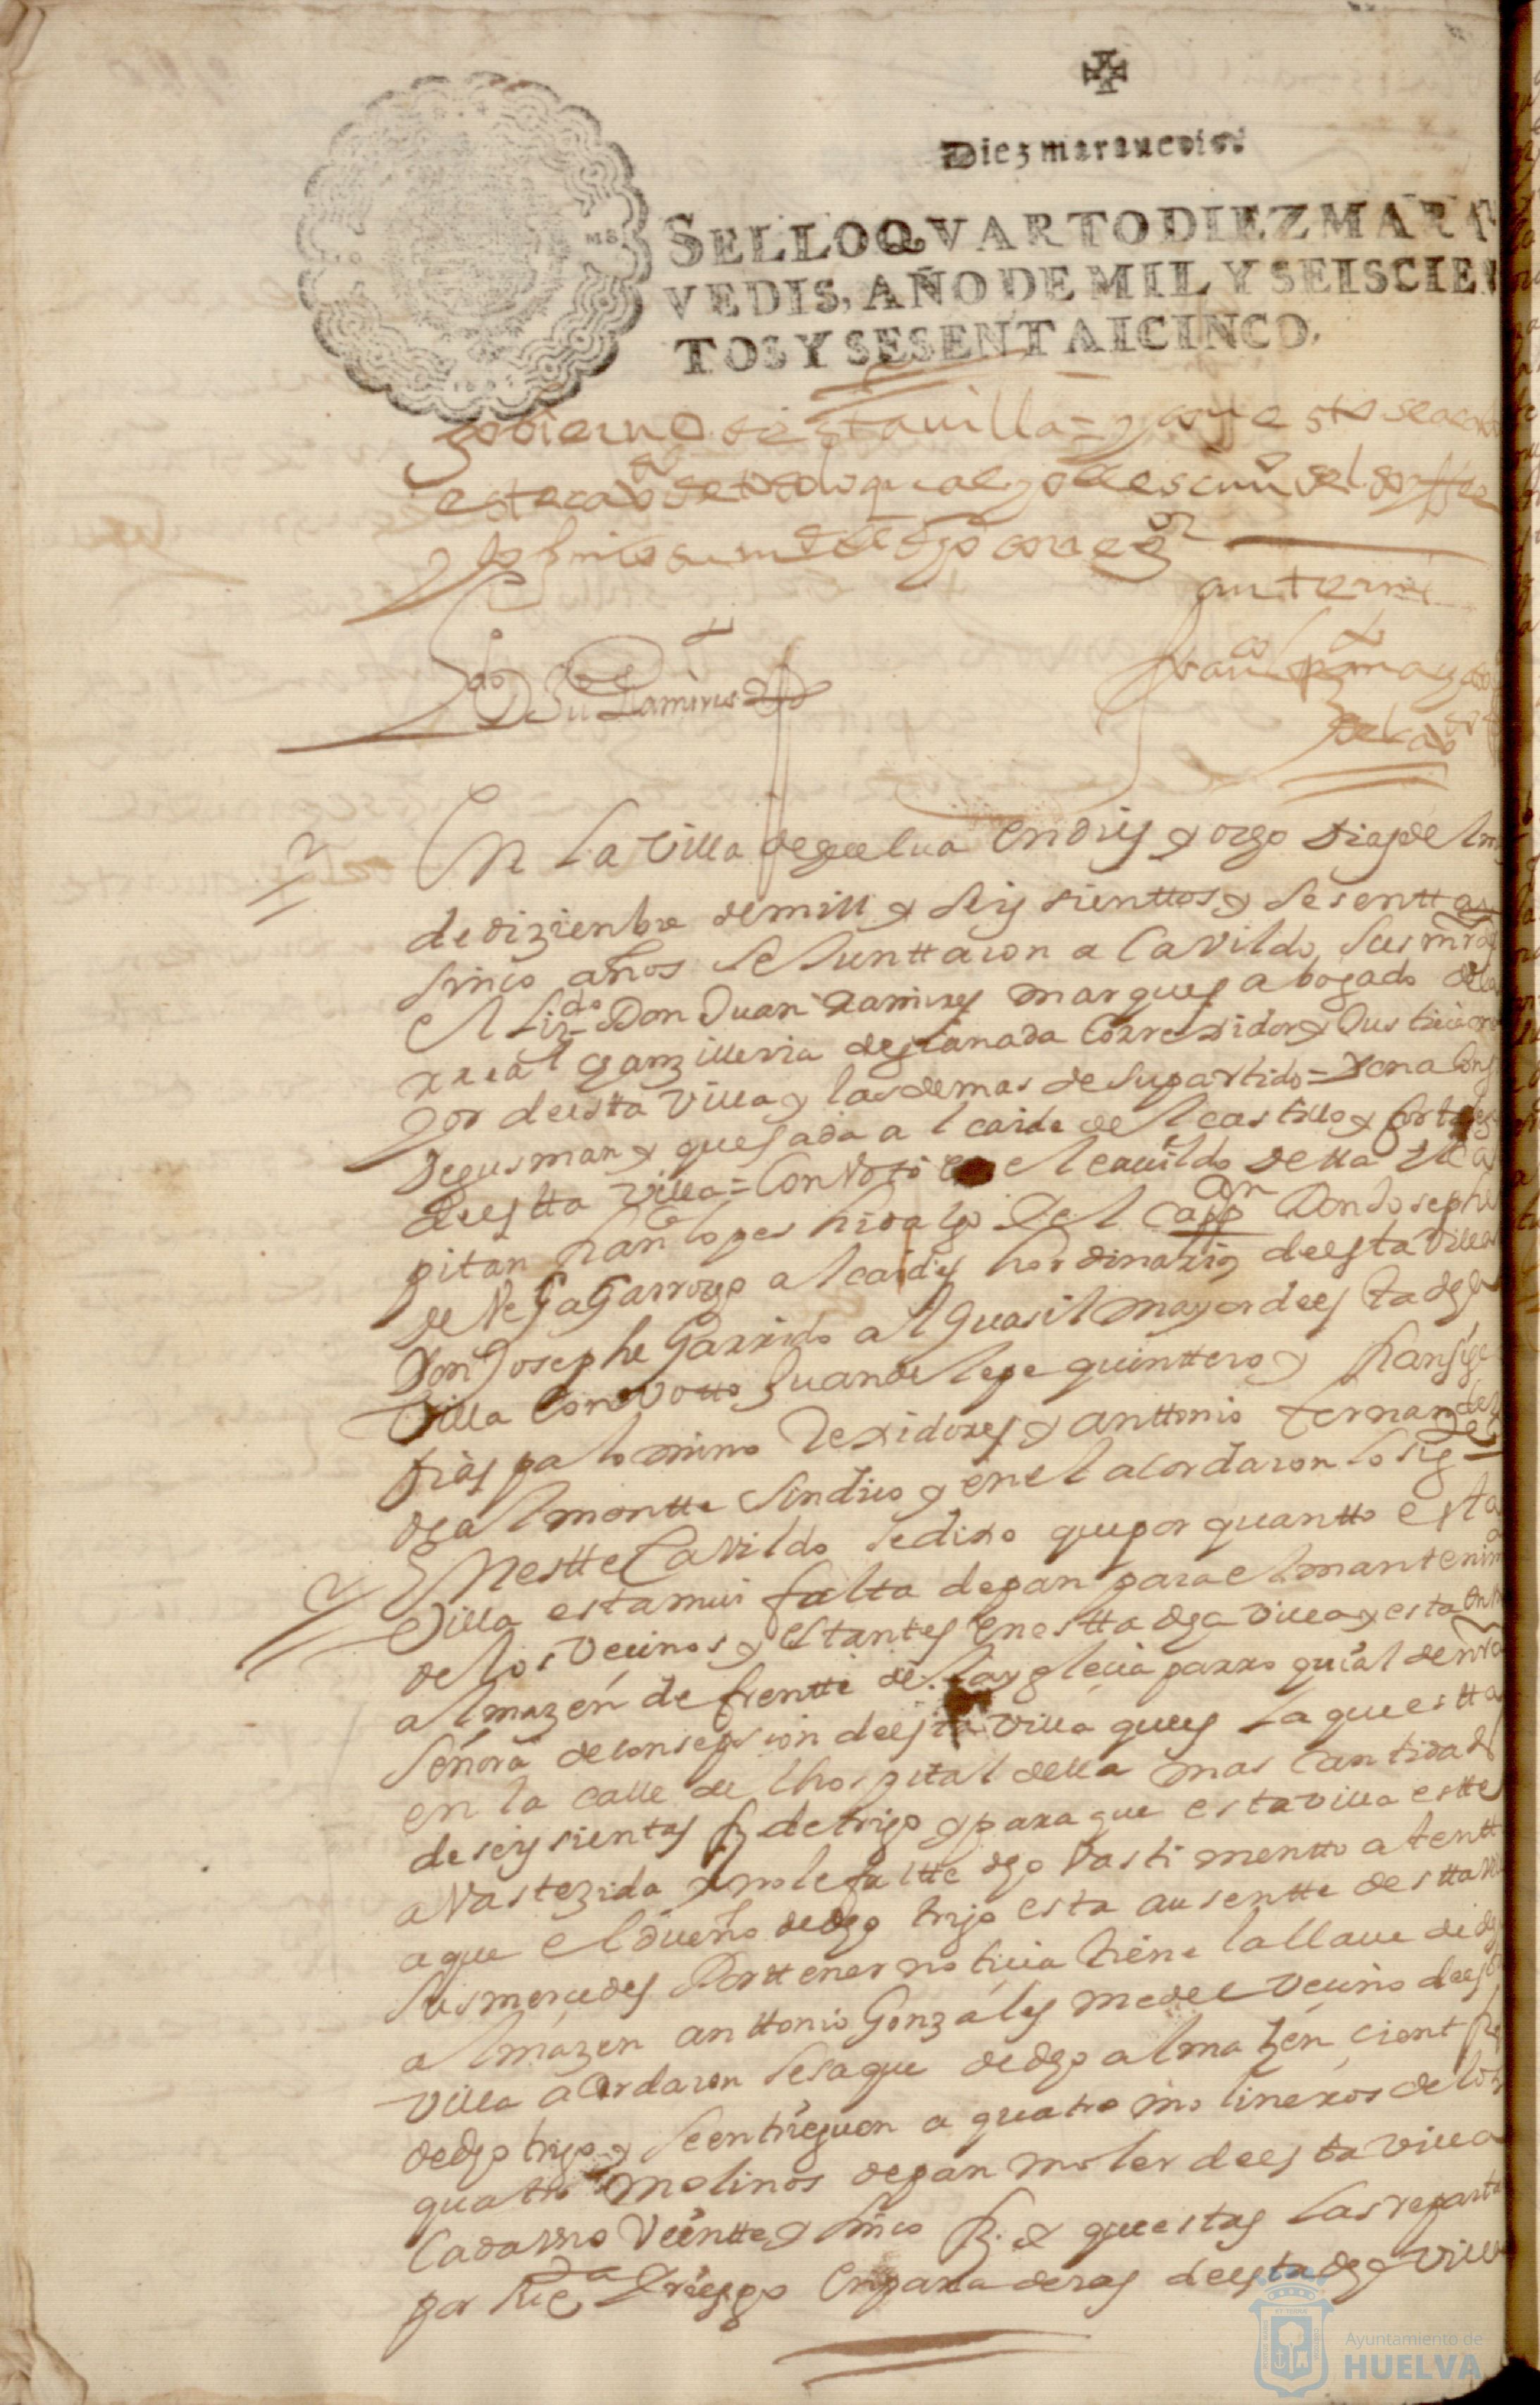 Diez marauedis.
SELLO QVARTO DIEZ MARA
VEDIS, AÑO DE MIL Y SEISCIEN
TOS Y SESENTA I CINCO.
gobierno de esta uilla = y con esto se acabo
este cavdo de todo lo qual yo el escriuo del doy ffee
y lo firmo su md de dho correg or
ante mi
Ldo D Ju Ramires
En la Villa de guelua en dies y ocho dias del mes
de dizienbre de mill y seis sienttos y sesentta y
sinco años se Junttaron a Cavildo sus mrds
el Lizdo Don Juan Ramires marques abogado de la
rreal chanzilleria de granada Correxidor y Justicia ma
yor de estta Villa y las demas de su partido =
de gusman y quesada alcaide del castillo y fortalez
de estta villa = Con Voto en el cauildo de tta el Ca
pitan fran co lopes hidalgo y el capp an Don Josephe
de Vega Garrozo alcaides hordinarios de esta Villa
Don Josephe Garrido alguasil mayor de esta dha
Villa Con Votto Juan de lepe quinttero y fran
frias palomino rexidores y anttonio fernandez
de almontte sindico y en el acordaron lo sig te
En estte Cavildo se dixo que por quantto esta
Villa esta mui falta de pan para el mantenim
de los vecinos y estantes en estta dha villa y esta un
almazen de frentte de la yglecia parroquial de nra
señora de consepsion de esta villa que es la que estta
en la calle del hospital della mas cantidad
de seis sientas f de trigo y para que esta villa estte
avastezida y no le faltte dho bastimentto atentt
a que el dueño de dho trigo esta ausentte de stta vi
sus mercedes por ttener noticia tiene la llaue de dh
almazen anttonio Gonzales medel vecino de est
villa acordaron se saque de dho almazen cient f
de dho trigo y se entreguen a quatro molineros de los
quatro molinos de pan moler de esta villa
Cada vno veintte y sinco f. y que estas las reparta
por en panaderas de esta dha villa
Ayuntamiento de
HUELVA